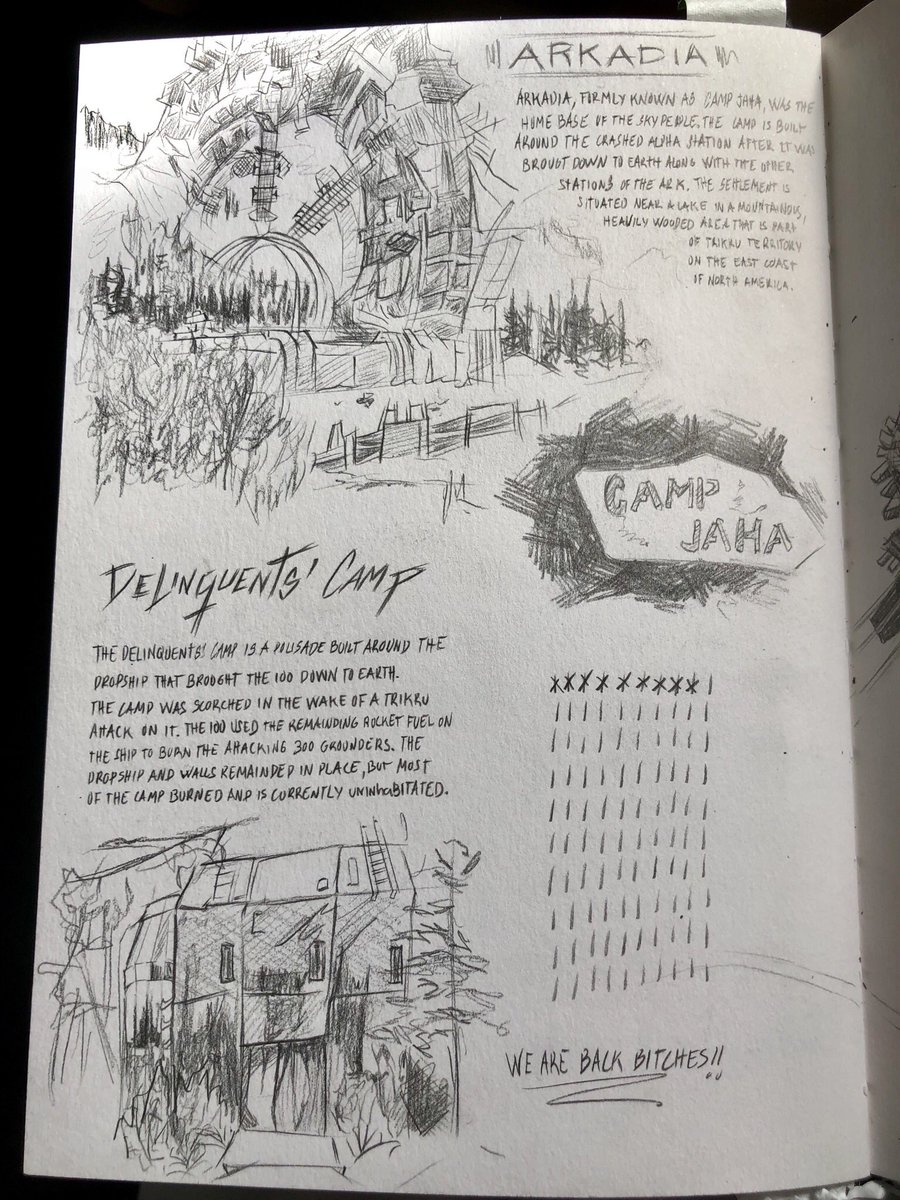 ARKADIA
ARKADIA, FORMLY KNOWN AS CAMP JAHA, WAS THE
HOME BASE OF THE SKY PEOPLE. THE CAMP IS BUILT
AROUND THE CRASHED ALPHA STATION AFTER IT WAS
BROUGT DOWN TO EARTH ALONG WITH THE OTHER
STATIONS OF THE ARK. THE SETTLEMENT IS
SITUATED NEAR A LAKE IN A MOUNTAINOUS,
HEAVILY WOODED AREA THAT IS PART
OF TRIKRU TERRITORY
ON THE EAST COAST
OF NORTH AMERICA.
CAMP
JAHA
DELINQUENTS' CAMP
THE DELINQUENTS' CAMP IS A POLISADE BUILT AROUND THE
DROPSHIP THAT BROUGHT THE 100 DOWN TO EARTH.
THE CAMP WAS SCORCHED IN THE WAKE OF A TRIKRU
ATTACK ON IT. THE 100 USED THE REMAINDING ROCKET FUEL ON
THE SHIP TO BURN THE ATTACKING 300 GROUNDERS. THE
DROPSHIP AND WALLS REMAINDED IN PLACE, BUT MOST
OF THE CAMP BURNED AND IS CURRENTLY UNINHABITATED.
WE ARE BACK BITCHES!!